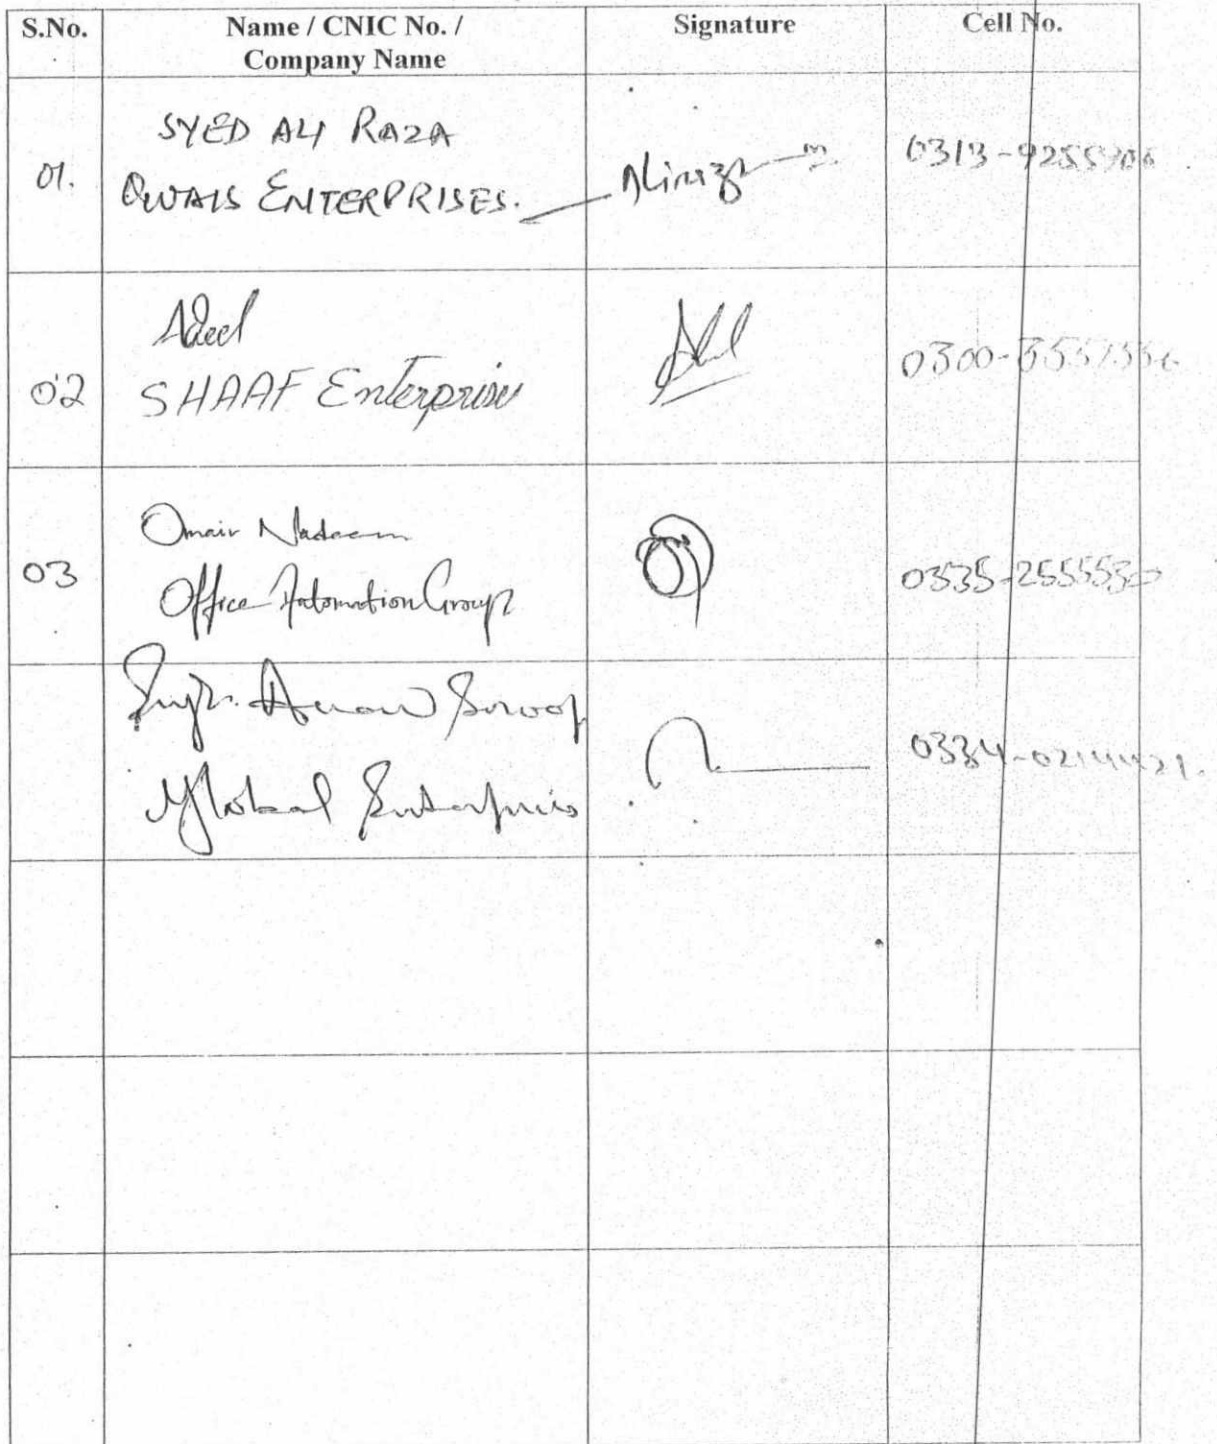 S.No.
Name / CNIC No. /
Company Name
Signature
Cell No.
01.
SYED ALI RAZA
OWAIS ENTERPRISES.
0313-9255
02
Adeel
SHAAF Enterprise
0300-
03
Omair Nadeem
Office Automation Group
0335-2555530
Engr.
Global Enterprises
0334-